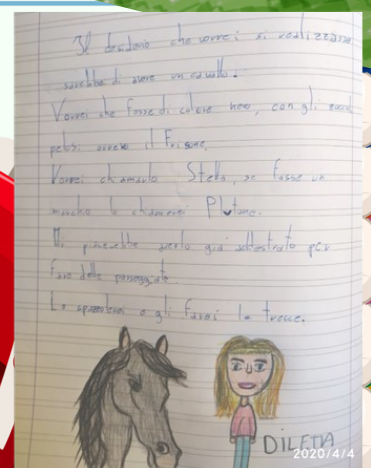 Il desiderio che vorrei si realizzasse
sarebbe di avere un cavallo.
Vorrei che fosse di colore nero, con gli zoccoli
pelosi ovvero il Frisone,
Vorrei chiamarlo Stella, se fosse un
maschio lo chiamerei Plutone.
Mi piacerebbe averlo già addestrato per
fare delle passeggiate.
Lo spazzolerei e gli farei le trecce.
DILETTA
2020/4/4